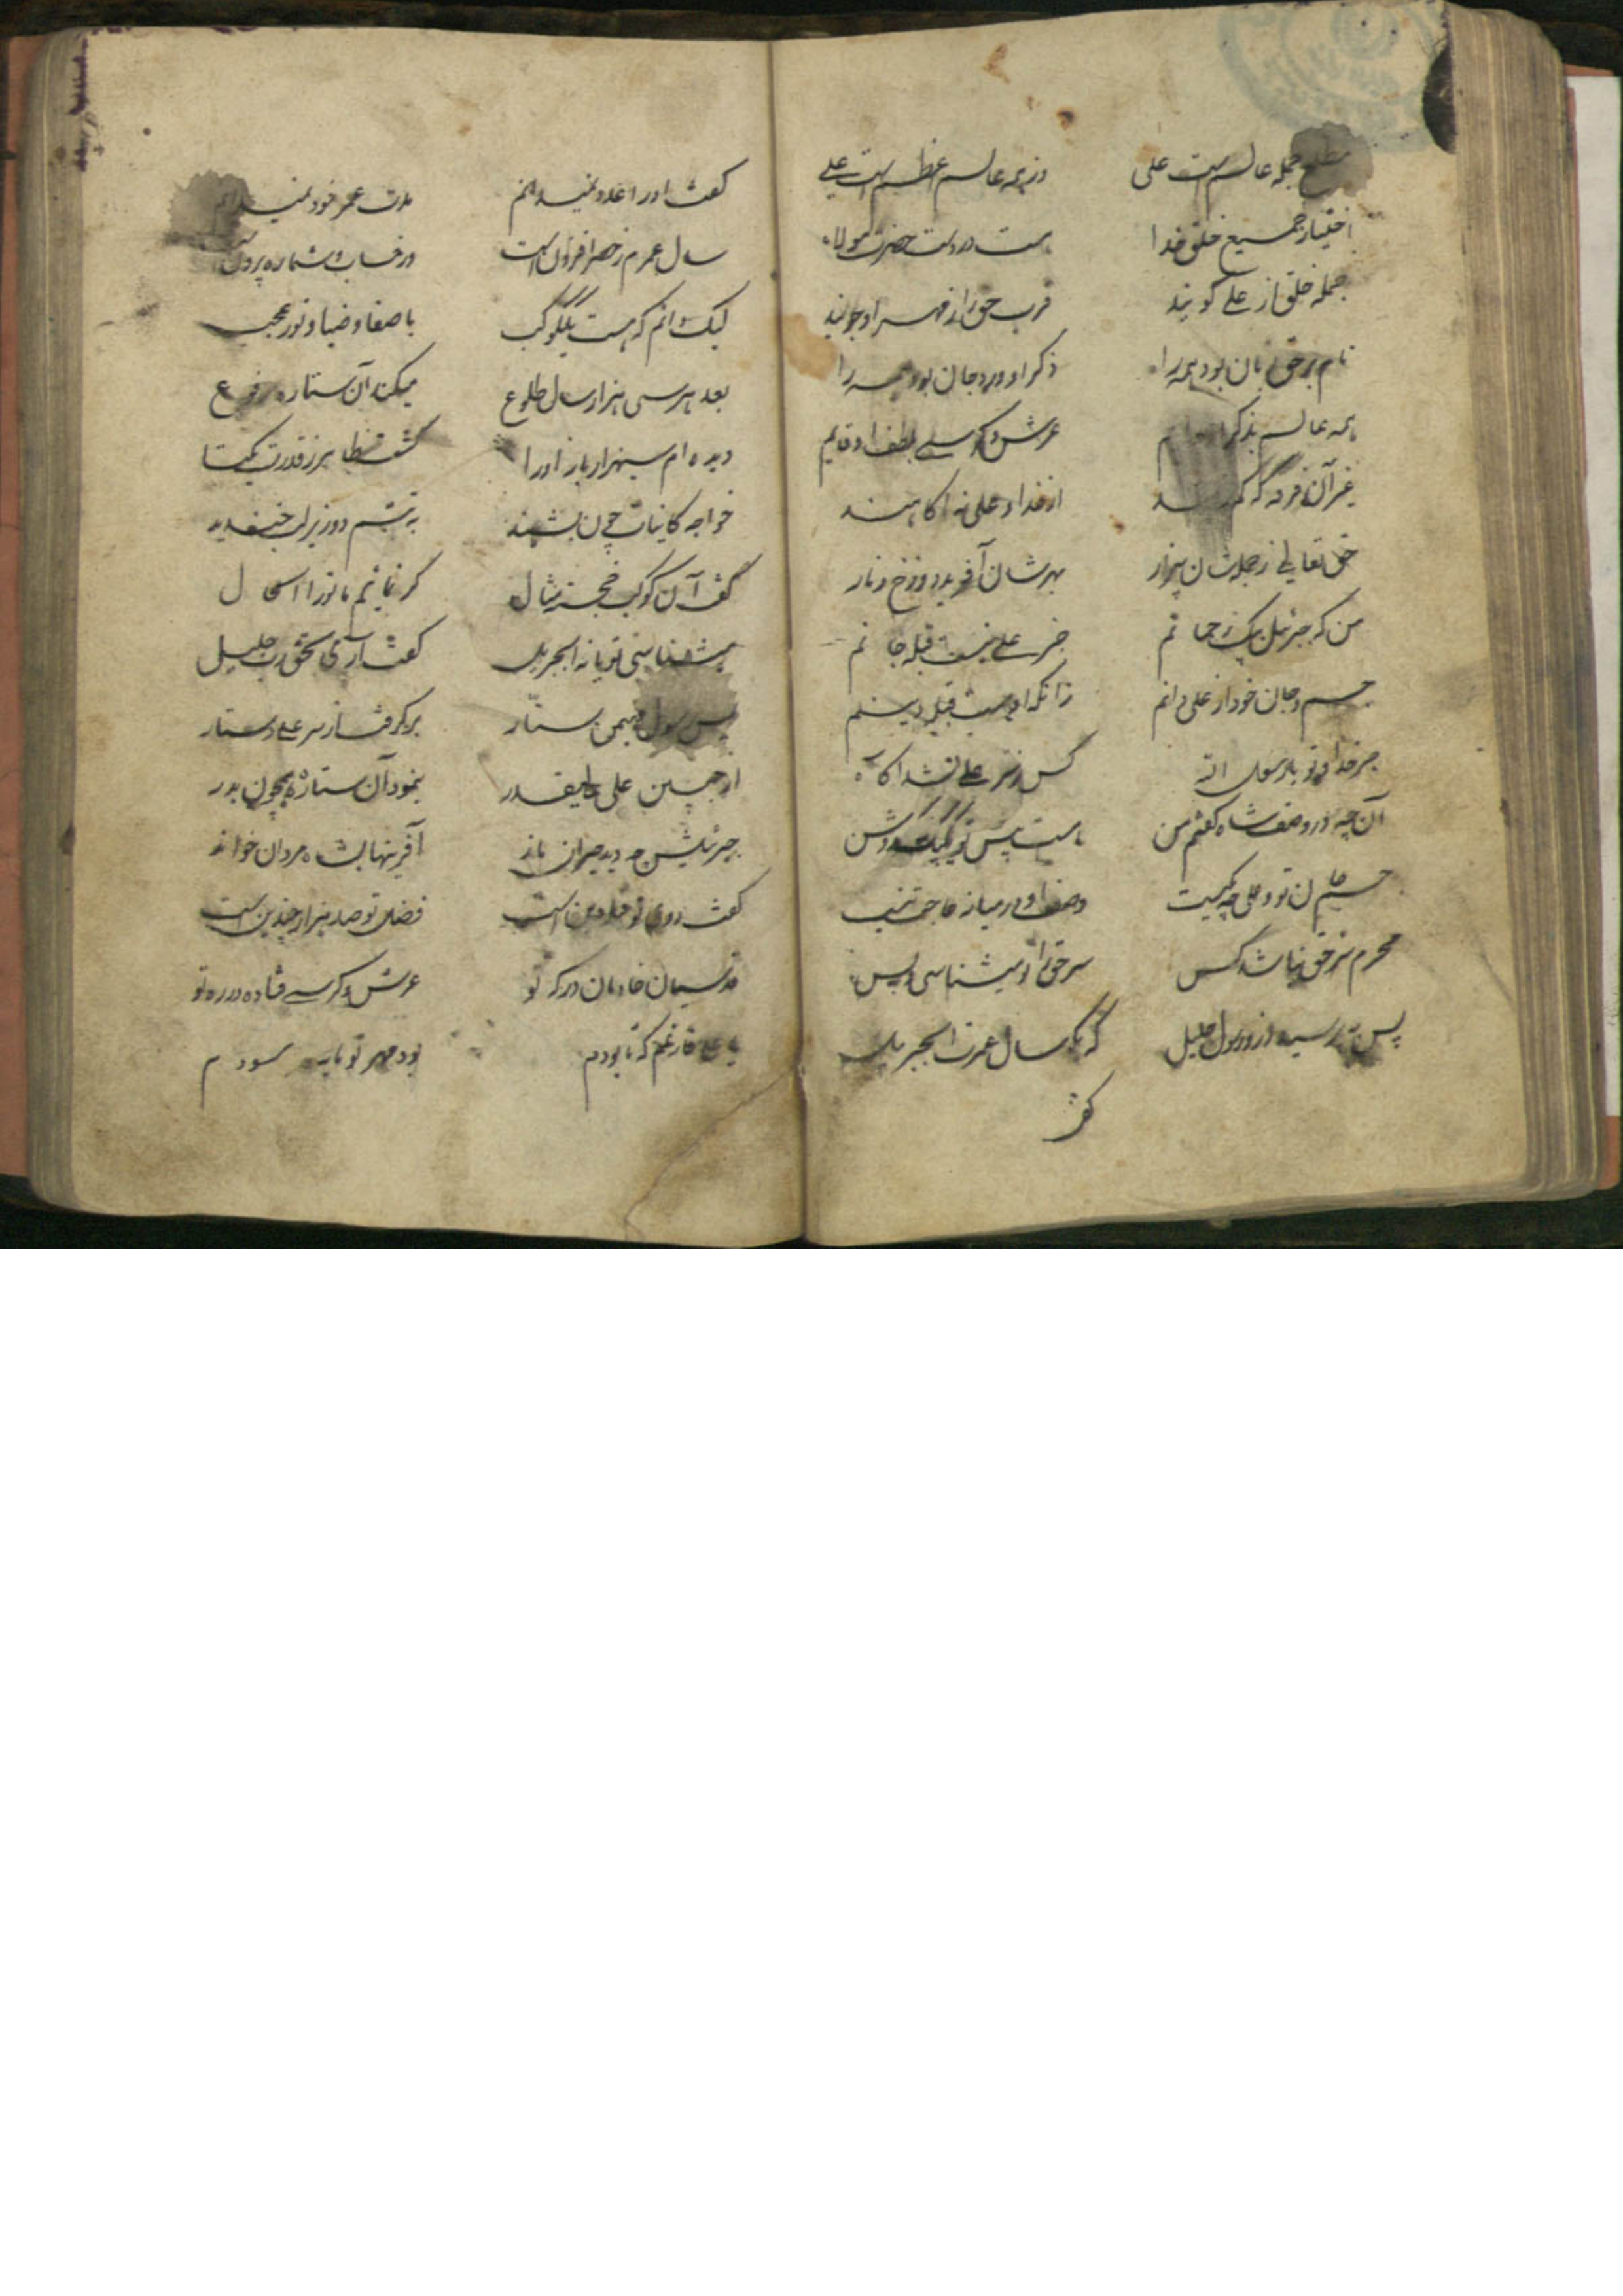 مطلع جمله عالم است علی وز همه عالم اعظم است علی
اختیار جمیع خلق خدا هست در دست حضرت مولا
جمله خلق از علی گویند قرب حق را ز مهر او جویند
نام بر حق زبان بود همه را ذکر او ورد جان بود همه را
همه عالم بذکر عرش و کرسی بلطف او قایم
غیر آن فرقه که از خدا و علی نه آگاهند
حق تعالی ز جمله شان بیزار بهر شان آفرید دوزخ و نار
من که جبرئیل پیک رحمانم جز علی نیست قبله جانم
جسم و جان خود از علی دانم زانکه او هست قبله دینم
جز خدا و تو یا رسول اله کس ز سر علی نشد آگاه
آن چه در وصف شاه گفتم من هست پیش تو یک بیک روشن
جسم جان تو و علی چه یکیست وصف او در میانه حاجت نیست
محرم سر حق نباشد کس سر حق را تو میشناسی و بس
پس بپرسید ازو رسول جلیل که بگو سال عمرت ای جبریل
گفت
گفت او را عدد نمیدانم مدت عمر خود نمیدانم
سال عمرم ز حصر افزون است ور حساب و شماره بیرون است
لیک دانم که هست یک کوکب با صفا و ضیا و نور عجب
بعد هر سی هزار سال طلوع میکند آن ستاره رفوع
دیده ام سی هزار بار او را گشت ظاهر ز قدرت یکتا
خواجه کاینات چون بشنید به تبسم دو زیر لب خندید
گفت آن کوکب خجسته مثال گر نمایم ترا اسحال
میشناسی تو یا نه ای جبریل گفت آری بحق رب جلیل
پس رسول مهیمن ستار برگرفت از سر علی دستار
از جبین علی عالیقدر بنمود آن ستاره همچون بدر
جبرئیلش چو دید حیران ماند آفرینها بشاه مردان خواند
گفت روی تو قبله دین است فضل تو صد هزار چندین است
قدسیان خادمان درگه تو عرش و کرسی فتاده در ره تو
یا علی فارغم که تا بودم بود مهر تو مایه سودم